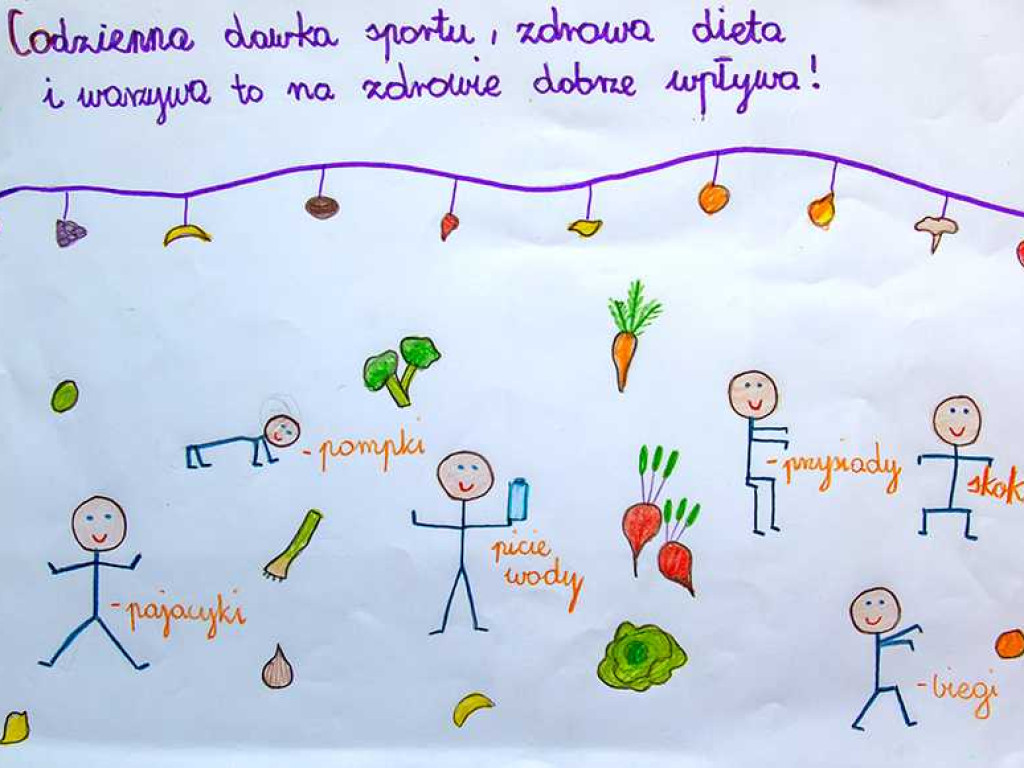 Codzienna dawka sportu, zdrowa dieta
i warzywa to na zdrowie dobrze wpływa!
- pompki
- przysiady
skok
picie
wody
- pajacyki
- biegi